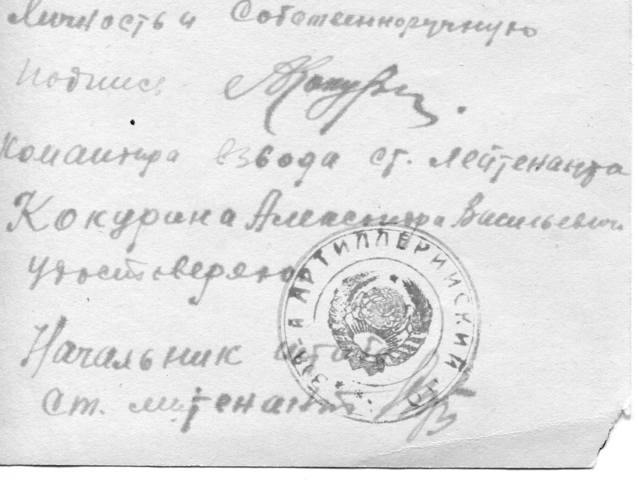 Личность и Собственноручную
подпись АКокурин.
Командира взвода ст. лейтенанта
Кокурина Александра Васильевича
удостоверяю
Начальник штаба
Ст. лейтенант
АРТИЛЛЕРИЙСКИЙ